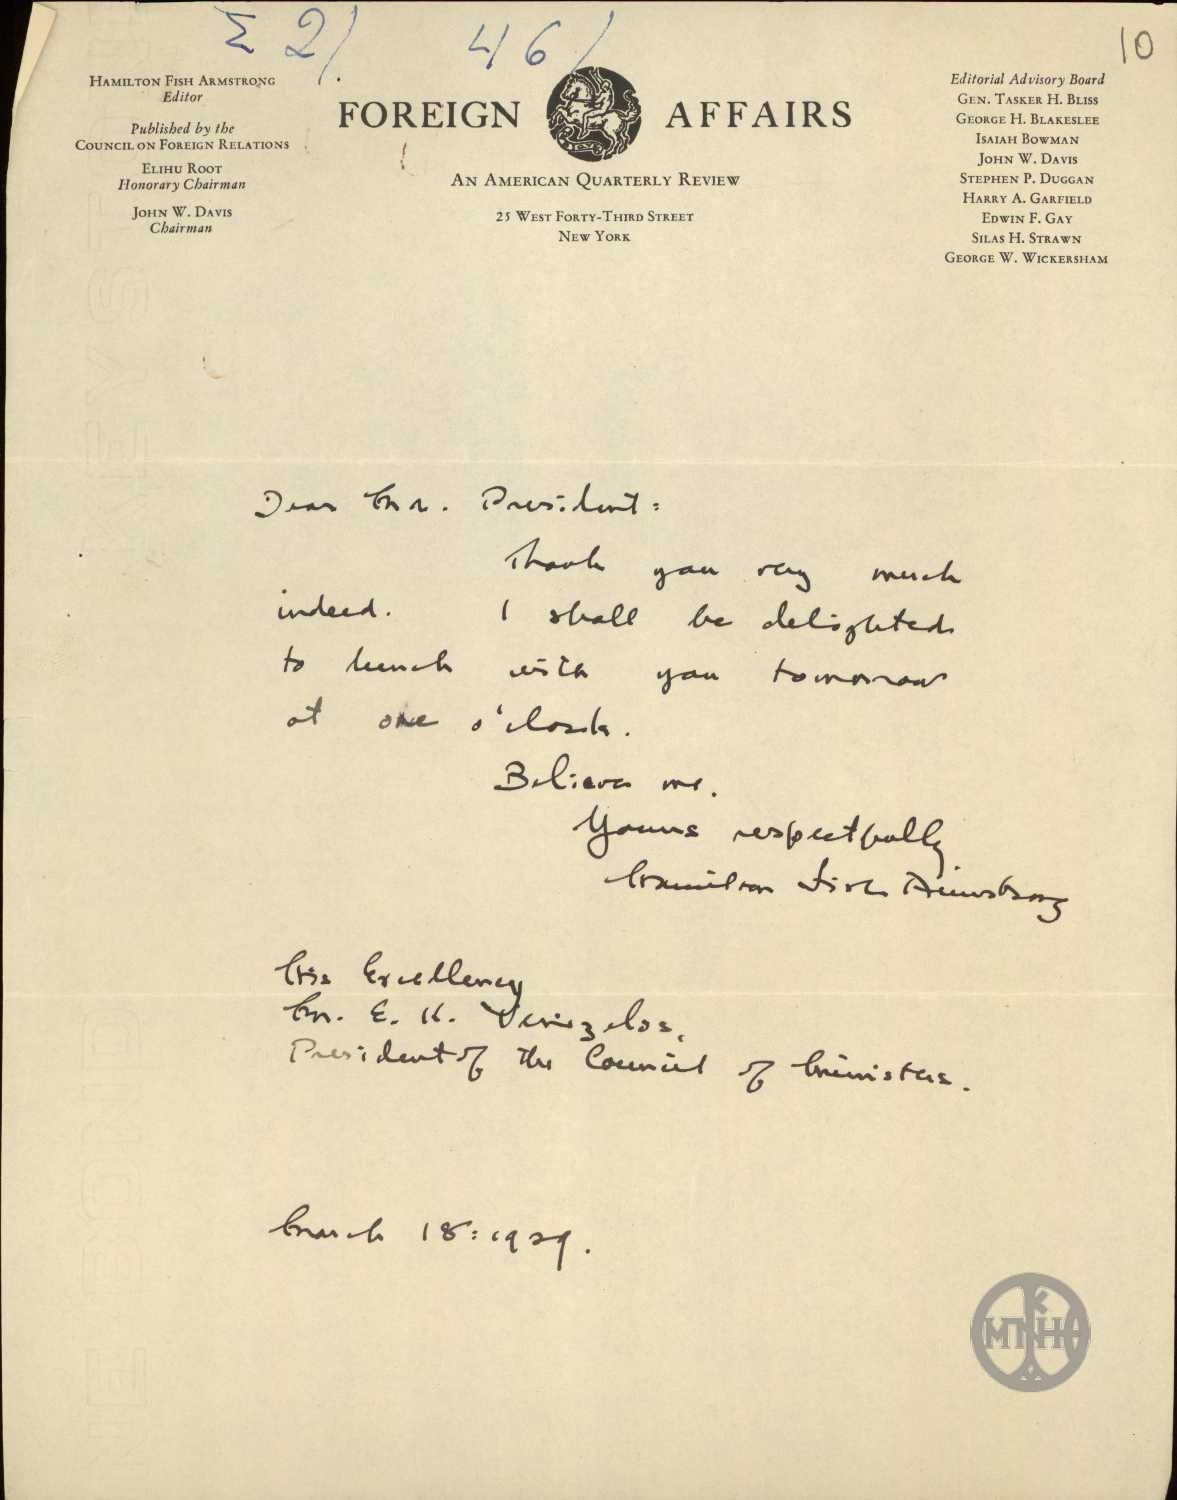 Σ 21 46/
10
HAMILTON FISH ARMSTRONG
Editor
Published by the
COUNCIL ON FOREIGN RELATIONS
ELIHU ROOT
Honorary Chairman
JOHN W. DAVIS
Chairman
FOREIGN AFFAIRS
AN AMERICAN QUARTERLY REVIEW
25 WEST FORTY-THIRD STREET
NEW YORK
Editorial Advisory Board
GEN. TASKER H. BLISS
GEORGE H. BLAKESLEE
ISAIAH BOWMAN
JOHN W. DAVIS
STEPHEN P. DUGGAN
HARRY A. GARFIELD
EDWIN F. GAY
SILAS H. STRAWN
GEORGE W. WICKERSHAM
Dear Mr. President:
Thank you very much
indeed. I shall be delighted
to lunch with you tomorrow
at one o'clock.
Believe me.
Yours respectfully
Hamilton Fish Armstrong
His Excellency
Mr. E. K. Venizelos,
President of the Council of Ministers.
March 18: 1929.